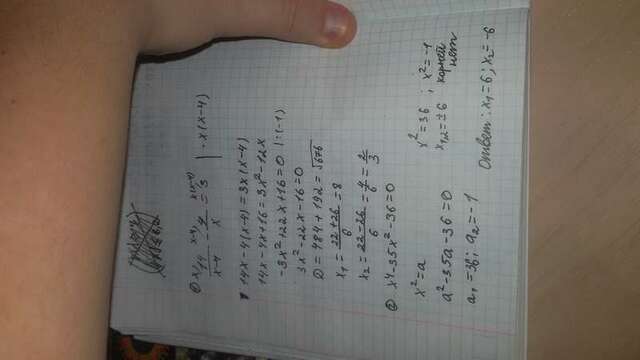 ① x/ x-4/ x(x-4)
14/(x-4) - 4/x = 3 | · x(x-4)
14x-4(x-4)=3x(x-4)
14x-4x+16=3x²-12x
-3x²+22x+16=0 |:(-1)
3x²-22x-16=0
D=484+192=√676
x₁=(22+26)/6=8
x₂=(22-26)/6=4/6=2/3
② x⁴-35x²-36=0
x²=a
a²-35a-36=0
a₁=36; a₂=-1
x²=36 ; x²=-1
x₁,₂=±6 корней
нет
Ответ: x₁=6; x₂=-6